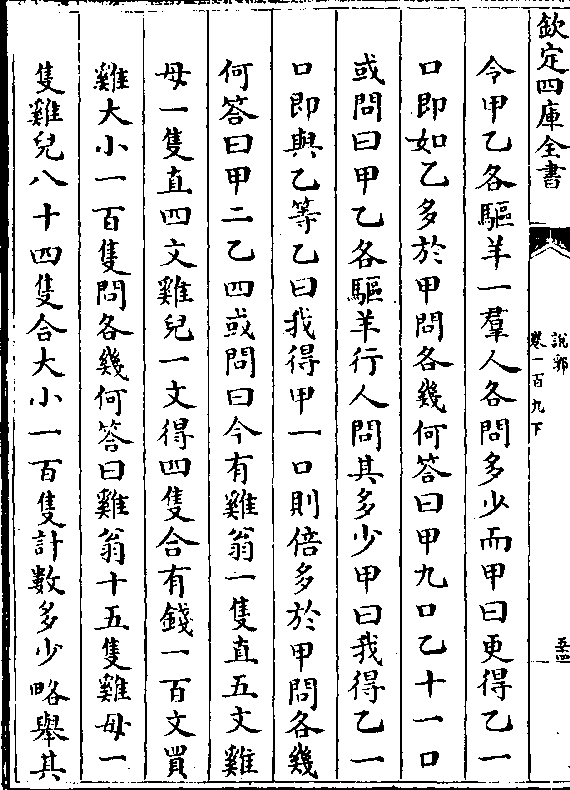 欽定四庫全書
說郛
卷一百九下
令甲乙各驅羊一羣人各問多少而甲曰更得乙一
口即如乙多於甲問各幾何答曰甲九口乙十一口
或問曰甲乙各驅羊行人問其多少甲曰我得乙一
口即與乙等乙曰我得甲一口則倍多於甲問各幾
何答曰甲二乙四或問曰今有雞翁一隻直五文雞
母一隻直四文雞兒一文得四隻合有錢一百文買
雞大小一百隻問各幾何答曰雞翁十五隻雞母一
隻雞兒八十四隻合大小一百隻計數多少略舉其